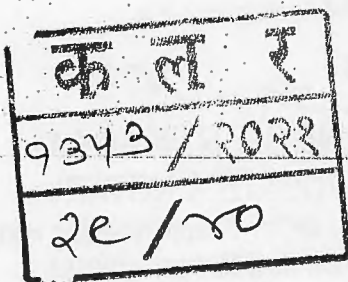 क ल र
१३५३ / २०२१
२९ / ४०